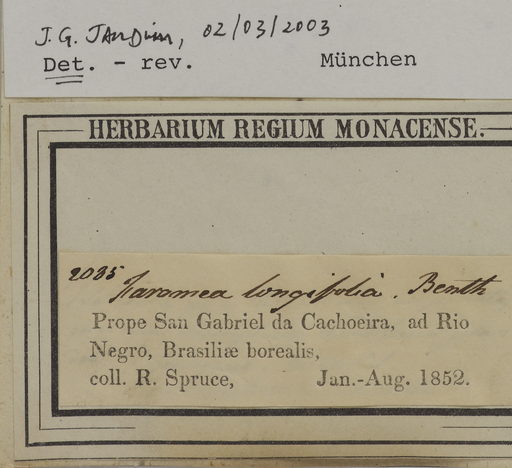 J. G. Jardim, 02/03/2003
Det. - rev. München
HERBARIUM REGIUM MONACENSE.
2035 Faramea longifolia. Benth
Prope San Gabriel da Cachoeira, ad Rio
Negro, Brasiliæ borealis,
coll. R. Spruce, Jan.-Aug. 1852.